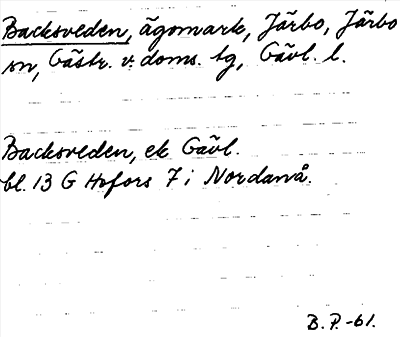 Backsveden, ägomark, Järbo, Järbo
sn, Gästr. v. doms. tg, Gävl. l.
Backsveden, ek Gävl.
bl. 13 G Hofors 7 i Nordanå.
B. P. -61.